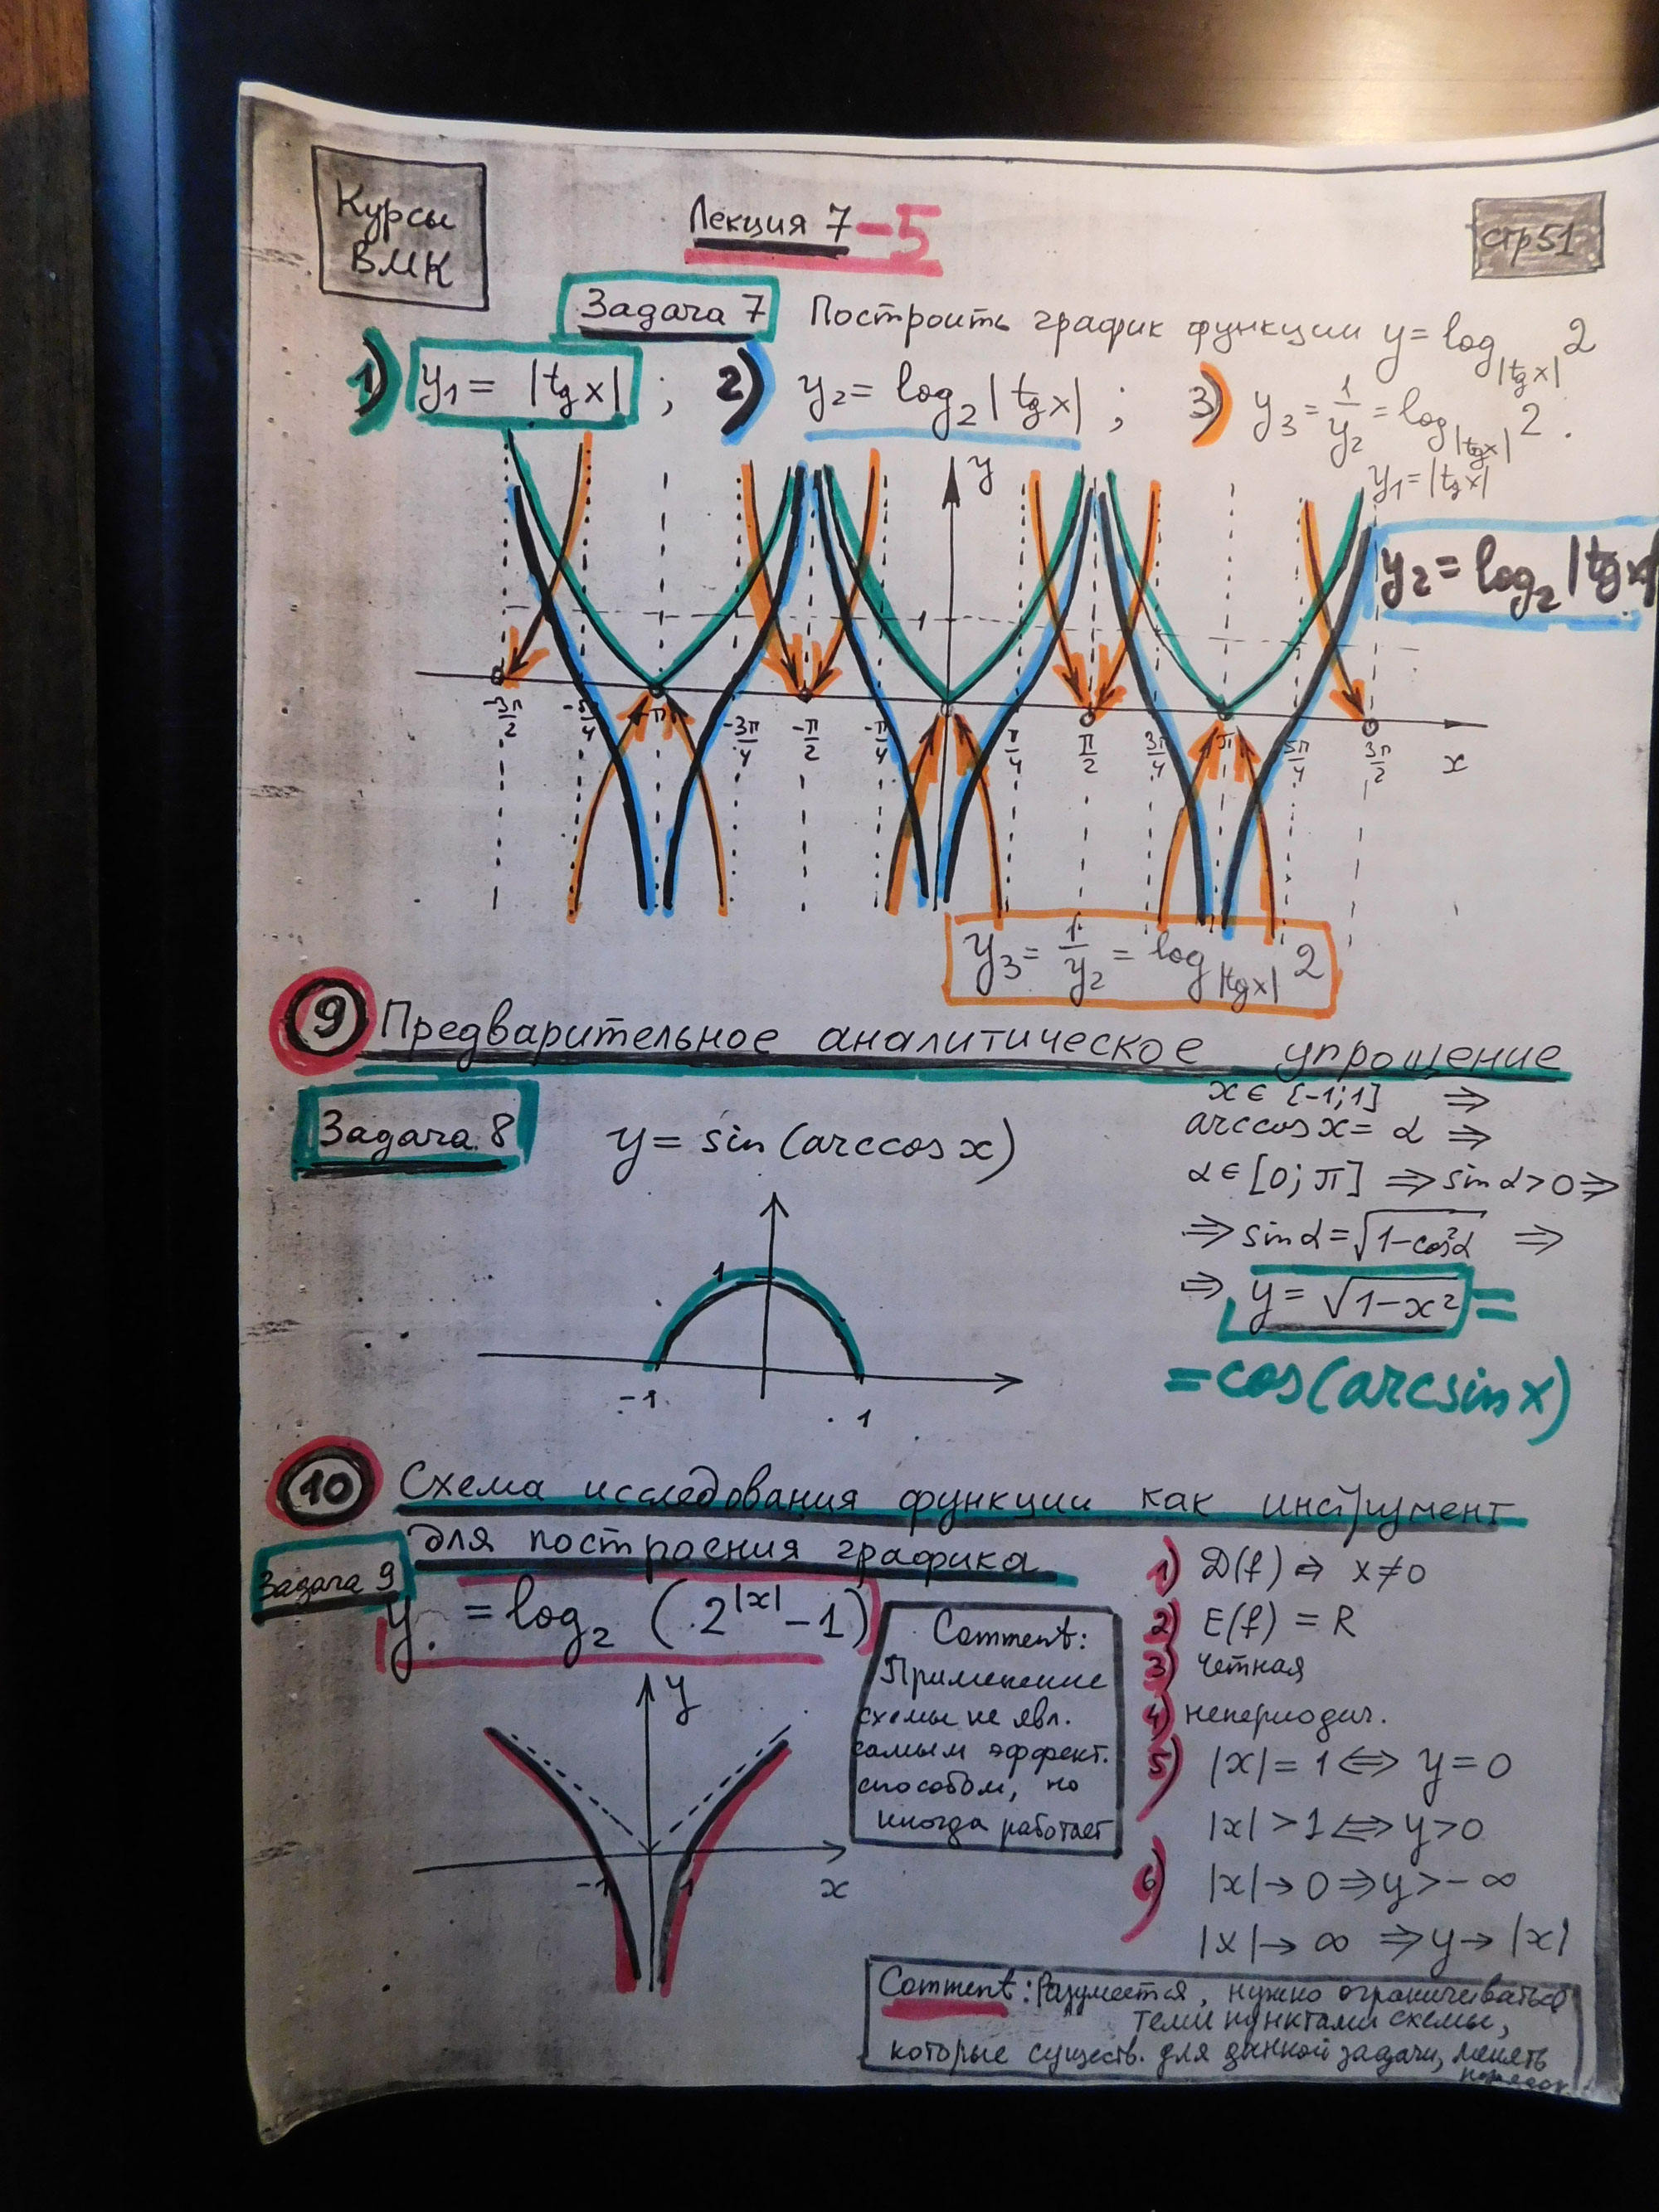 Курсы
ВМК
Лекция 7-5
стр 51
Задача 7 Построить график функции y = log_|tg x| 2
1) y₁ = |tg x| ; 2) y₂ = log₂|tg x| ; 3) y₃ = 1/y₂ = log_|tg x| 2 .
y
y₁ = |tg x|
y₂ = log₂|tg x|
1
-3π/2 -5π/4 -π -3π/4 -π/2 -π/4 π/4 π/2 3π/4 π 5π/4 3π/2 x
y₃ = 1/y₂ = log_|tg x| 2
9 Предварительное аналитическое упрощение
Задача 8 y = sin(arccos x)
x ∈ [-1;1] ⇒
arccos x = α ⇒
α ∈ [0; π] ⇒ sin α > 0 ⇒
⇒ sin α = √(1-cos²α) ⇒
⇒ y = √(1-x²) =
= cos(arcsin x)
1
-1 1
10 Схема исследования функции как инструмент
для построения графика
Задача 9
y = log₂ (2^|x| - 1)
y
x
-1 1
Comment:
Применение
схемы не явл.
самым эффект.
способом, но
иногда работает
1) D(f) ⇒ x ≠ 0
2) E(f) = R
3) Четная
4) непериодич.
5) |x| = 1 ⇔ y = 0
|x| > 1 ⇔ y > 0
6) |x| → 0 ⇒ y > -∞
|x| → ∞ ⇒ y → |x|
Comment: Разумеется, нужно ограничиваться
теми пунктами схемы,
которые существ. для данной задачи, менять
порядок